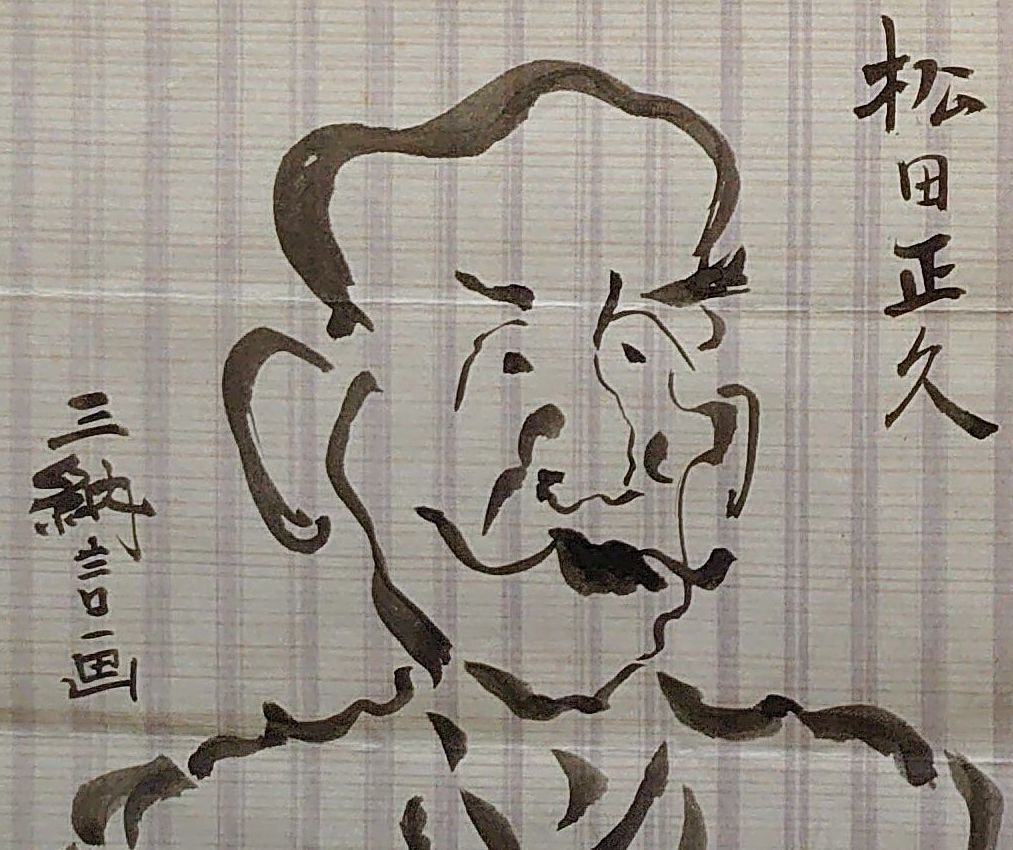 松田正久
三納言画